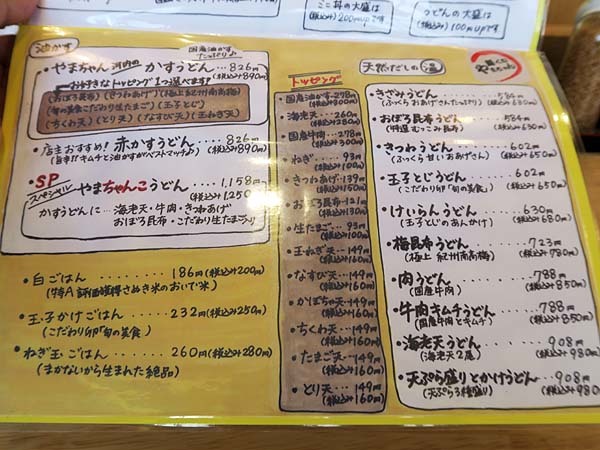 ミニ丼の大盛は
(税込み)200mupです
うどんの大盛は
(税込み)100mupです
油かす
国産油かす
たっぷり♪
・やまちゃん河内のかすうどん‥826円
(税込み890円)
お好きなトッピング1つ選べます!
(おぼろ昆布)(きつねあげ)(極上紀州南高梅)
(旬の美食こだわり生たまご)(玉子とじ)
(ちくわ天)(とり天)(なすび天)(玉ねぎ天)
・店主おすすめ!赤かすうどん‥826円
(旨辛!!キムチと油かすがベストマッチ♪)(税込み890円)
・SP
スペシャル
やまちゃんこうどん‥‥1,158円
(税込み1,250円)
かすうどんに…海老天・牛肉・きつねあげ
おぼろ昆布・こだわり生たまご入り
・白ごはん‥‥‥‥186円(税込み200円)
(特A評価獲得さぬき米のおいで米)
・玉子かけごはん‥‥232円(税込み250円)
(こだわり卵「旬の美食」)
・ねぎ玉ごはん‥‥260円(税込み280円)
(まかないから生まれた絶品)
トッピング
・国産油かす‥278円
(税込み300円)
・海老天‥‥260円
(税込み280円)
・国産牛肉‥‥278円
(税込み300円)
・ねぎ‥‥‥93円
(税込み100円)
・きつねあげ‥139円
(税込み150円)
・おぼろ昆布‥121円
(税込み130円)
・生たまご‥‥93円
(税込み100円)
・玉ねぎ天‥149円
(税込み160円)
・なすび天‥149円
(税込み160円)
・かぼちゃ天‥149円
(税込み160円)
・ちくわ天‥149円
(税込み160円)
・たまご天‥149円
(税込み160円)
・とり天‥‥149円
(税込み160円)
天然だしの湯
やまちゃん
・きざみうどん‥‥‥584円
(ふっくらおあげさんたっぷり)(税込み630円)
・おぼろ昆布うどん‥‥584円
(特選むっこみ昆布)(税込み630円)
・きつねうどん‥‥‥602円
(ふっくら甘いおあげさん)(税込み650円)
・玉子とじうどん‥‥‥602円
(こだわり卵「旬の美食」)(税込み650円)
・けいらんうどん‥‥‥630円
(玉子とじのあんかけ)(税込み680円)
・梅昆布うどん‥‥‥723円
(極上紀州南高梅)(税込み780円)
・肉うどん‥‥‥‥788円
(国産牛肉)(税込み850円)
・牛肉キムチうどん‥‥788円
(国産牛肉とキムチ)(税込み850円)
・海老天うどん‥‥‥908円
(海老天2尾)(税込み980円)
・天ぷら盛りとかけうどん‥908円
(天ぷら3種盛り)(税込み980円)